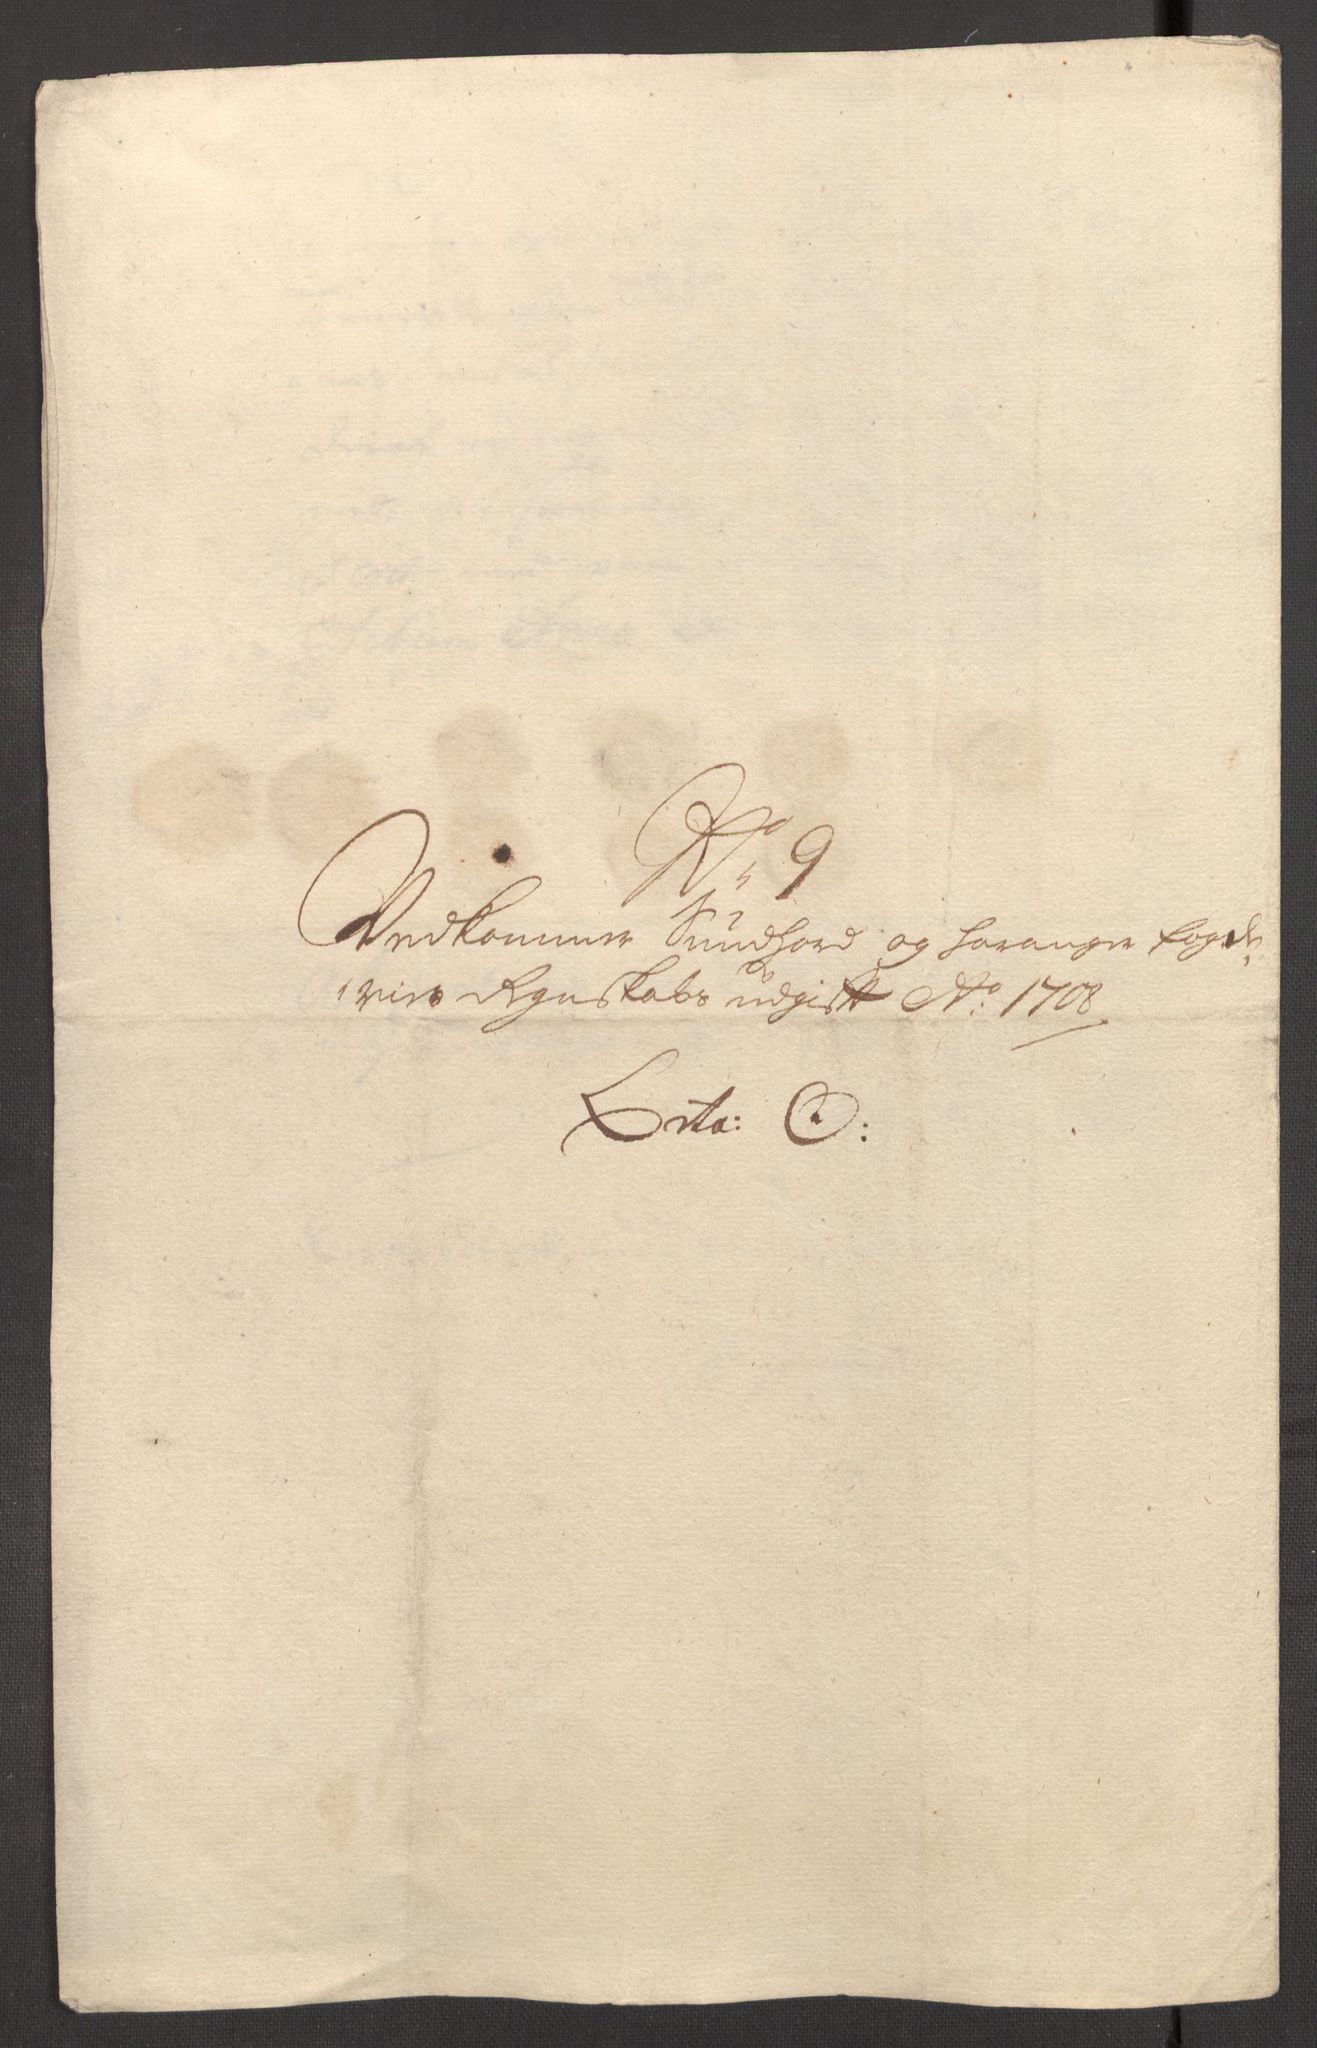 No 9
Vedkommer Sundhord og Haranger fogde-
riers Regnskabs udgifft Ao: 1708
Lita: C: